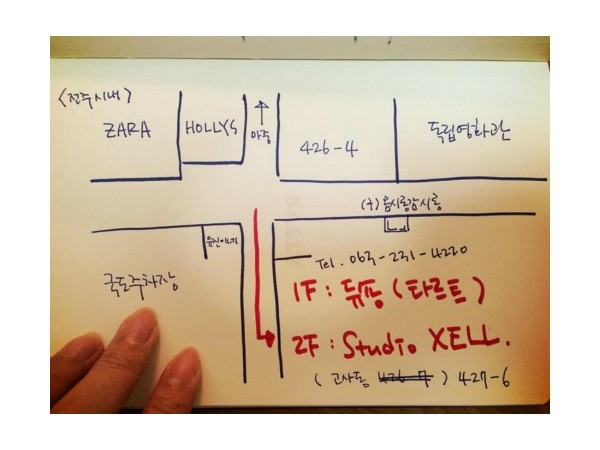 <전주시내>
ZARA
HOLLYS
426-4
독립영화관
국도주차장
Tel. 063-231-4220
1F: 듀숑 (타르트)
2F: Studio XELL.
(고사동 426-7) 427-6